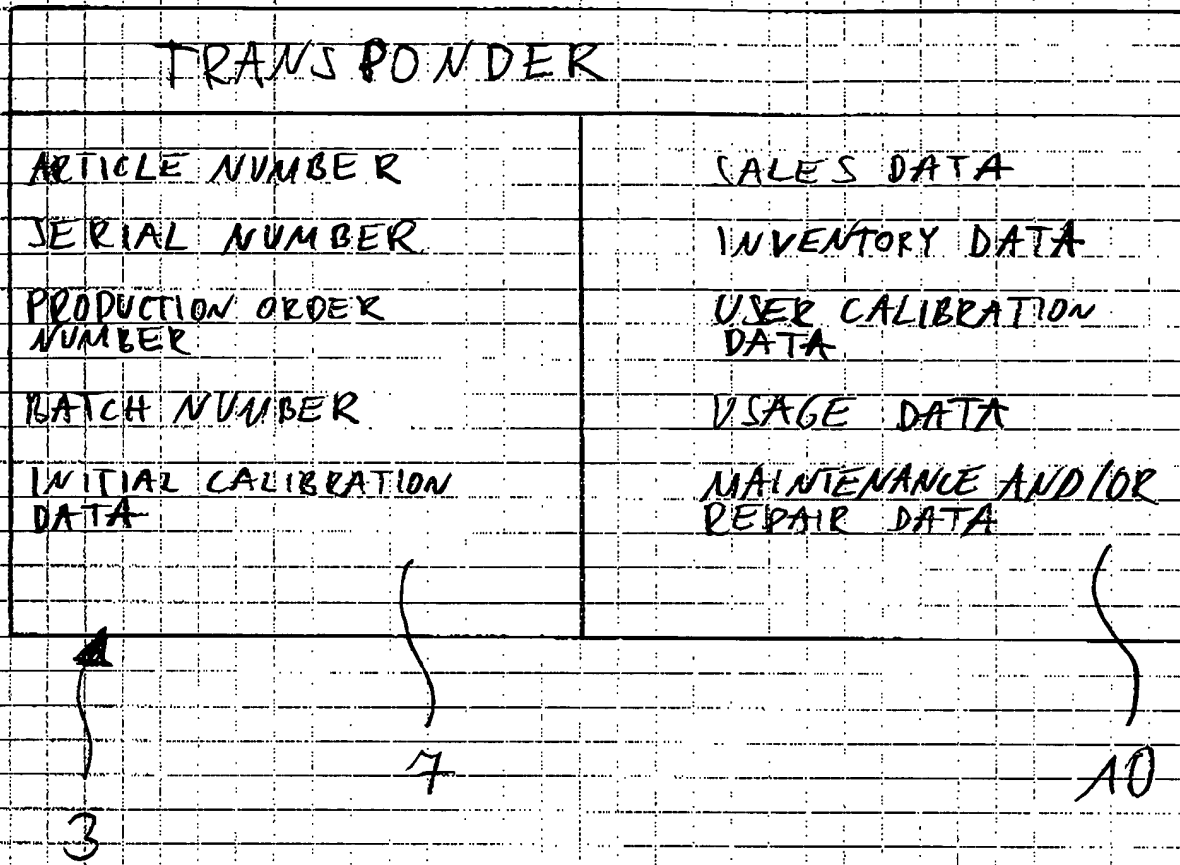 TRANSPONDER
ARTICLE NUMBER
SERIAL NUMBER
PRODUCTION ORDER
NUMBER
BATCH NUMBER
INITIAL CALIBRATION
DATA
SALES DATA
INVENTORY DATA
USER CALIBRATION
DATA
USAGE DATA
MAINTENANCE AND/OR
REPAIR DATA
7
10
3